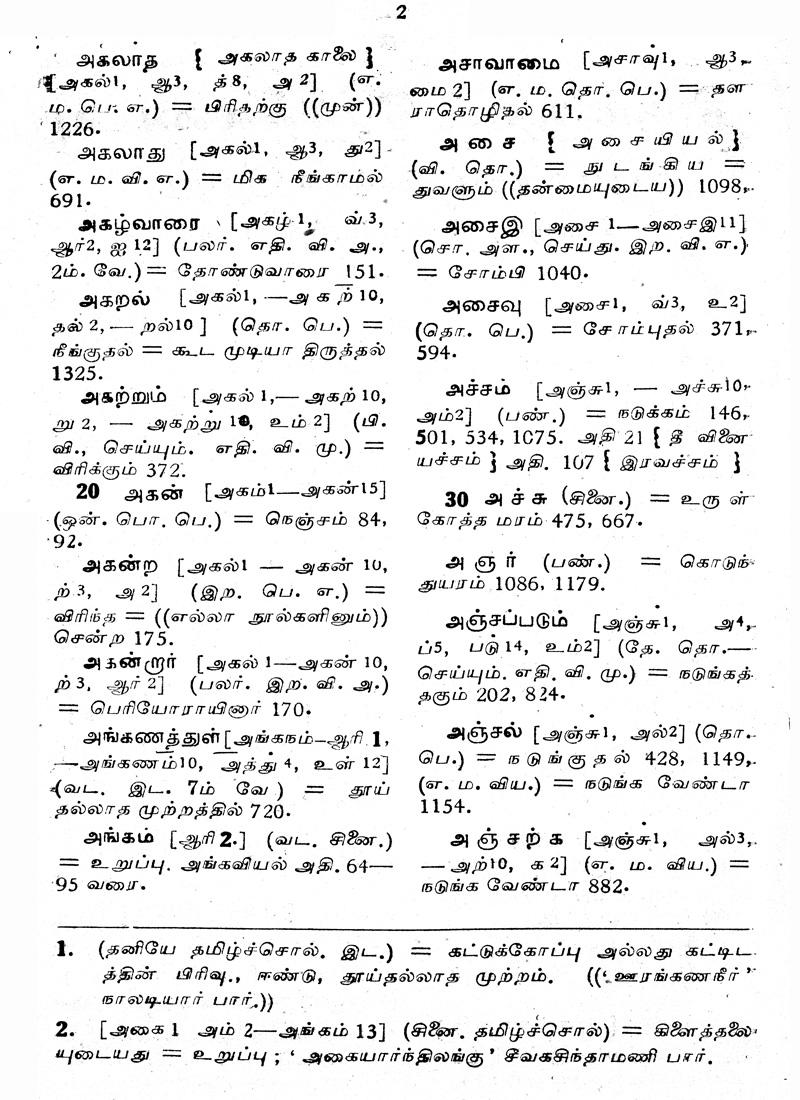 2
அகலாத { அகலாத காலை }
[அகல்1, ஆ3, த்8, அ2] (எ.
ம. பெ. எ.) = பிரிதற்கு ((முன்))
1226.
அகலாது [அகல்1, ஆ3, து2]
(எ. ம. வி. எ.) = மிக நீங்காமல்
691.
அகழ்வாரை [அகழ்1, வ்3,
ஆர்2, ஐ12] (பலர். எதி. வி. அ.,
2ம். வே.) = தோண்டுவாரை 151.
அகறல் [அகல்1, —அகற்10,
தல்2,— றல்10] (தொ. பெ.) =
நீங்குதல் = கூட முடியா திருத்தல்
1325.
அகற்றும் [அகல்1,— அகற்10,
று2, — அகற்று10, உம்2] (பி.
வி., செய்யும். எதி. வி. மு.) =
விரிக்கும் 372.
20 அகன் [அகம்1—அகன்15]
(ஒன். பொ. பெ.) = நெஞ்சம் 84,
92.
அகன்ற [அகல்1 — அகன் 10,
ற்3, அ2] (இற. பெ. எ.) =
விரிந்த = ((எல்லா நூல்களினும்))
சென்ற 175.
அகன்றார் [அகல்1—அகன் 10,
ற்3, ஆர்2] (பலர். இற. வி. அ.)
= பெரியோராயினார் 170.
அங்கணத்துள் [அங்கநம்—ஆரி 1,
—அங்கணம்10, அத்து4, உள்12]
(வட. இட. 7ம் வே) = தூய்
தல்லாத முற்றத்தில் 720.
அங்கம் [ஆரி 2.] (வட. சினை.)
= உறுப்பு. அங்கவியல் அதி. 64—
95 வரை.
அசாவாமை [அசாவு1, ஆ3,
மை2] (எ. ம. தொ. பெ.) = தள
ராதொழிதல் 611.
அசை { அசையியல் }
(வி. தொ.) = நுடங்கிய =
துவளும் ((தன்மையுடைய)) 1098,
அசைஇ [அசை1—அசைஇ11]
(சொ. அள., செய்து. இற. வி. எ.)
= சோம்பி 1040.
அசைவு [அசை1, வ்3, உ2]
(தொ. பெ.) = சோம்புதல் 371,
594.
அச்சம் [அஞ்சு1, — அச்சு10,
அம்2] (பண்.) = நடுக்கம் 146,
501, 534, 1075. அதி 21 { தீ வினை
யச்சம் } அதி. 107 { இரவச்சம் }
30 அச்சு (சினை.) = உருள்
கோத்த மரம் 475, 667.
அஞர் (பண்.) = கொடுந்
துயரம் 1086, 1179.
அஞ்சப்படும் [அஞ்சு1, அ4,
ப்5, படு14, உம்2] (தே. தொ.—
செய்யும். எதி. வி. மு.) = நடுங்கத்
தகும் 202, 824.
அஞ்சல் [அஞ்சு1, அல்2] (தொ.
பெ.) = நடுங்குதல் 428, 1149,
(எ. ம. விய.) = நடுங்க வேண்டா
1154.
அஞ்சற்க [அஞ்சு1, அல்3,
—அற்10, க2] (எ. ம. விய.) =
நடுங்க வேண்டா 882.
1. (தனியே தமிழ்ச்சொல். இட.) = கட்டுக்கோப்பு அல்லது கட்டிட
த்தின் பிரிவு., ஈண்டு, தூய்தல்லாத முற்றம். ((‘ ஊரங்கணநீர் ’
நாலடியார் பார்.))
2. [அகை1 அம்2—அங்கம்13] (சினை. தமிழ்ச்சொல்) = கிளைத்தலை
யுடையது = உறுப்பு ; ‘ அகையார்ந்திலங்கு ’ சீவகசிந்தாமணி பார்.